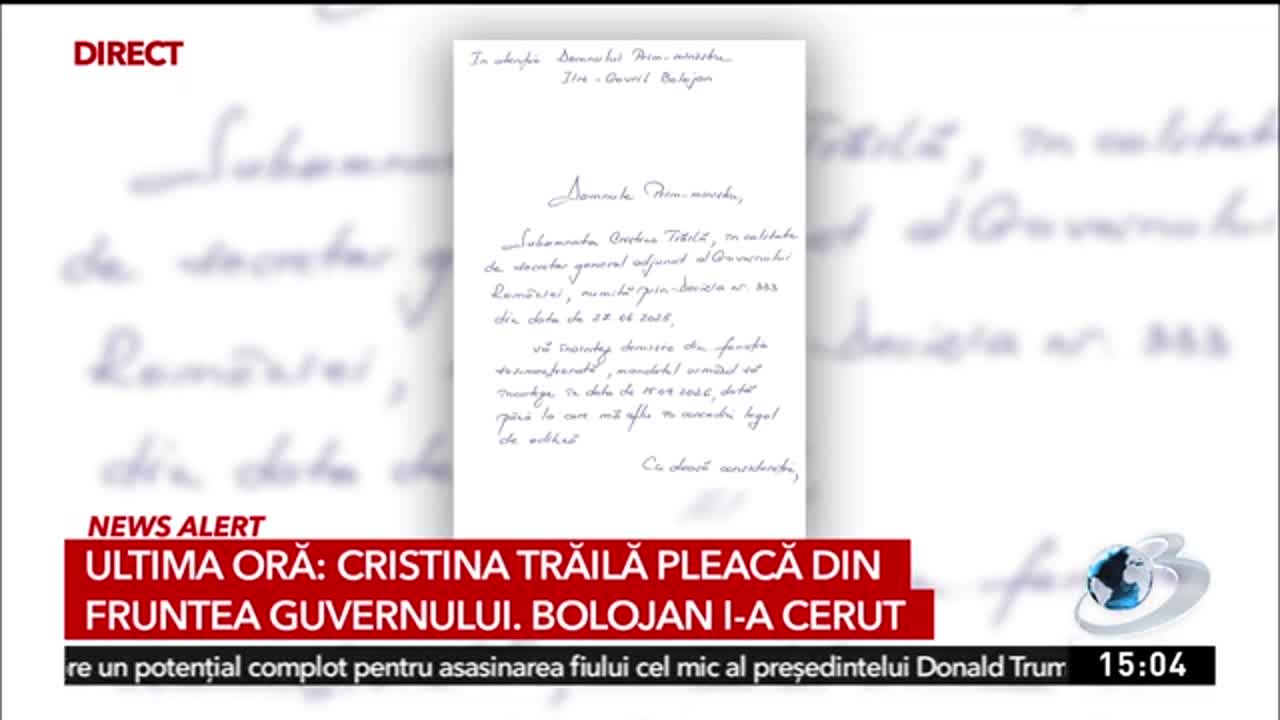 DIRECT
In atenția Domnului Prim-ministru
Ilie-Gavril Bolojan
Domnule Prim-ministru,
Subsemnata Cristina Trăilă, în calitate
de secretar general adjunct al Guvernului
României, numită prin Decizia nr. 333
din data de 27.06.2025,
vă înaintez demisia din funcția
, mandatul urmând să
înceteze în data de 15.04.2026, dată
până la care mă aflu în concediu legal
de odihnă
Cu deosită considerație,
NEWS ALERT
ULTIMA ORĂ: CRISTINA TRĂILĂ PLEACĂ DIN
FRUNTEA GUVERNULUI. BOLOJAN I-A CERUT
re un potențial complot pentru asasinarea fiului cel mic al președintelui Donald Trum
15:04
3